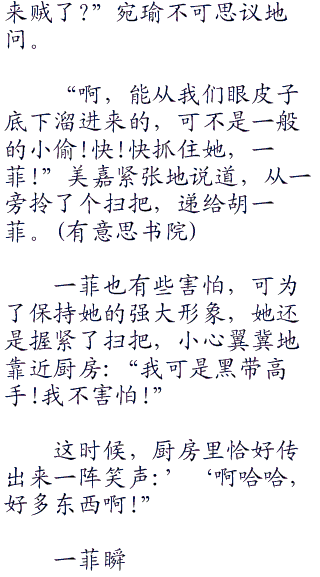 来贼了?”宛瑜不可思议地
问。
“啊，能从我们眼皮子
底下溜进来的，可不是一般
的小偷!快!快抓住她，一
菲!”美嘉紧张地说道，从一
旁拎了个扫把，递给胡一
菲。(有意思书院)
一菲也有些害怕，可为
了保持她的强大形象，她还
是握紧了扫把，小心翼冀地
靠近厨房:“我可是黑带高
手!我不害怕!”
这时候，厨房里恰好传
出来一阵笑声:’‘啊哈哈，
好多东西啊!”
一菲瞬